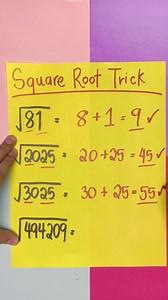 Square Root Trick
√81 = 8+1 = 9 ✓
√2025 = 20+25 = 45 ✓
√3025 = 30 + 25 = 55 ✓
√494209 =